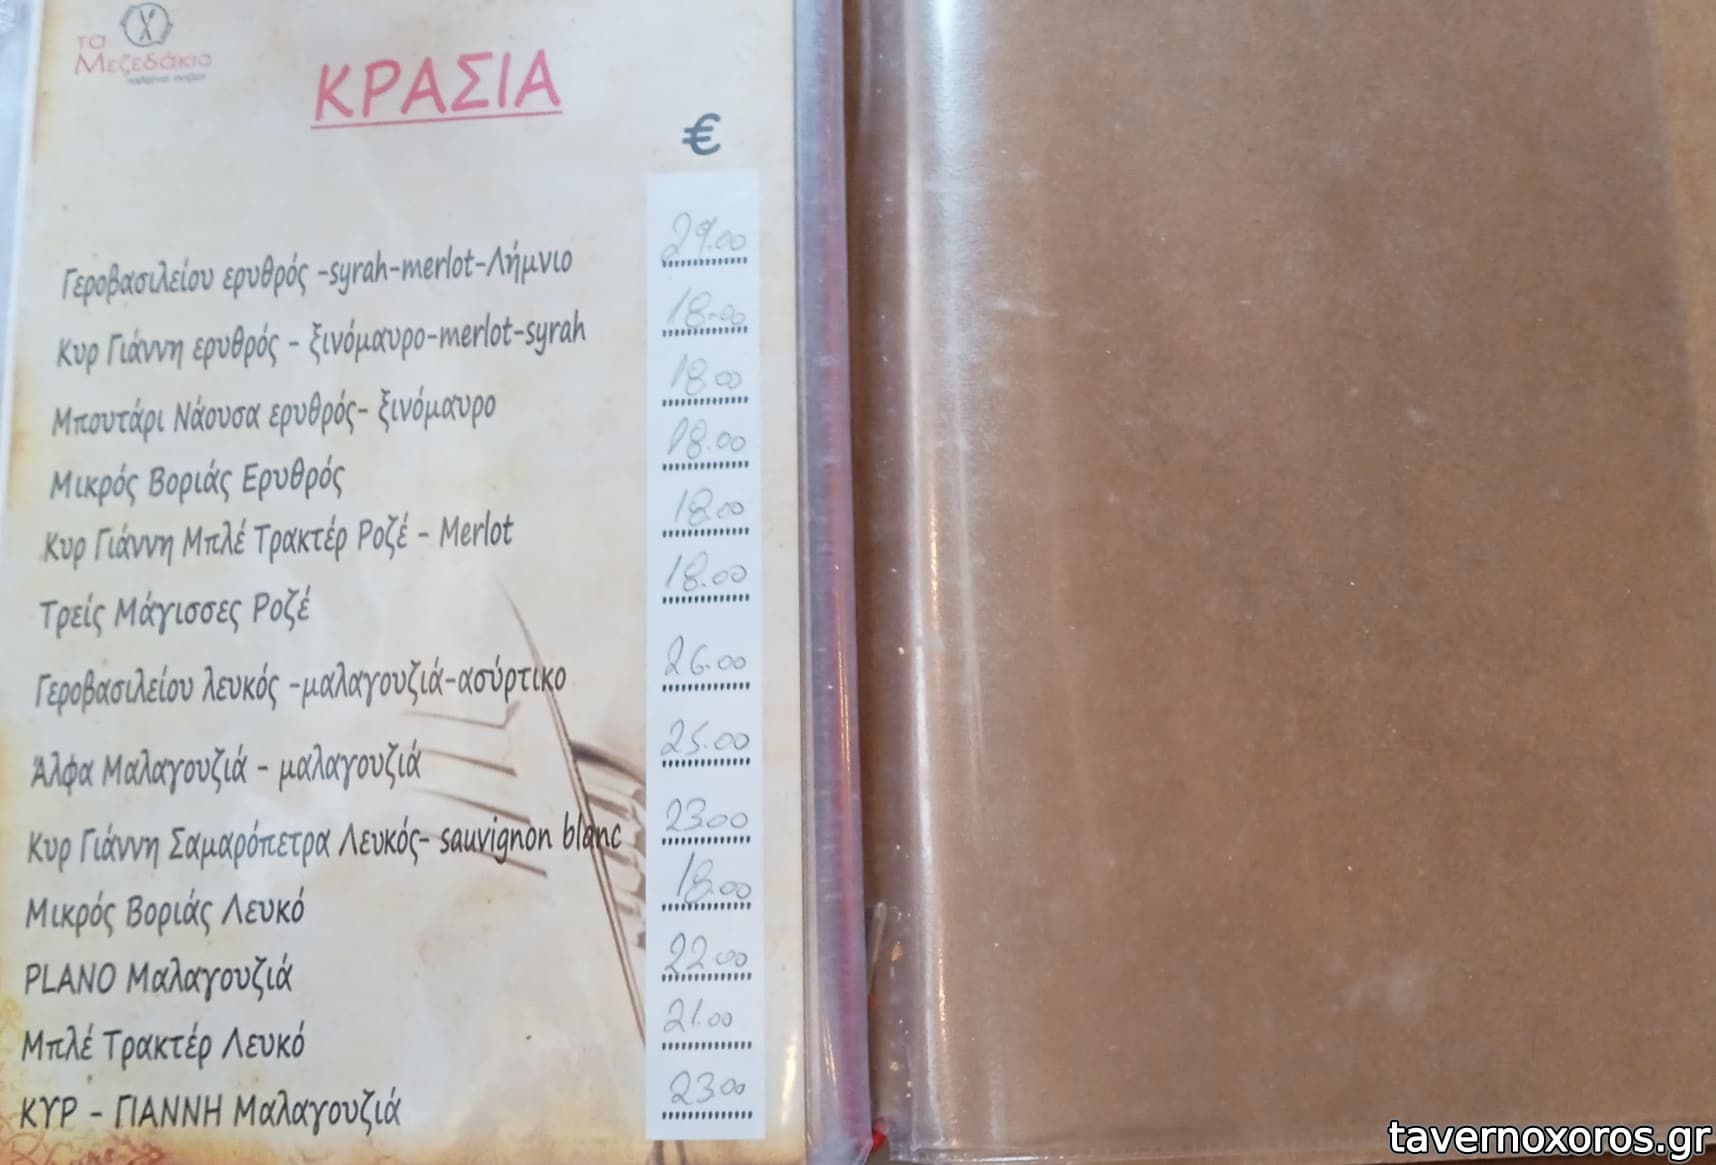 τα
Μεζεδάκια
ΚΡΑΣΙΑ
€
Γεροβασιλείου ερυθρός -syrah-merlot-Λήμνιο 29.00
Κυρ Γιάννη ερυθρός - ξινόμαυρο-merlot-syrah 18.00
Μπουτάρι Νάουσα ερυθρός- ξινόμαυρο 18.00
Μικρός Βοριάς Ερυθρός 18.00
Κυρ Γιάννη Μπλέ Τρακτέρ Ροζέ - Merlot 18.00
Τρείς Μάγισσες Ροζέ 18.00
Γεροβασιλείου λευκός -μαλαγουζιά-ασύρτικο 26.00
Άλφα Μαλαγουζιά - μαλαγουζιά 25.00
Κυρ Γιάννη Σαμαρόπετρα Λευκός- sauvignon blanc 23.00
Μικρός Βοριάς Λευκό 18.00
PLANO Μαλαγουζιά 22.00
Μπλέ Τρακτέρ Λευκό 21.00
ΚΥΡ - ΓΙΑΝΝΗ Μαλαγουζιά 23.00
tavernoxoros.gr